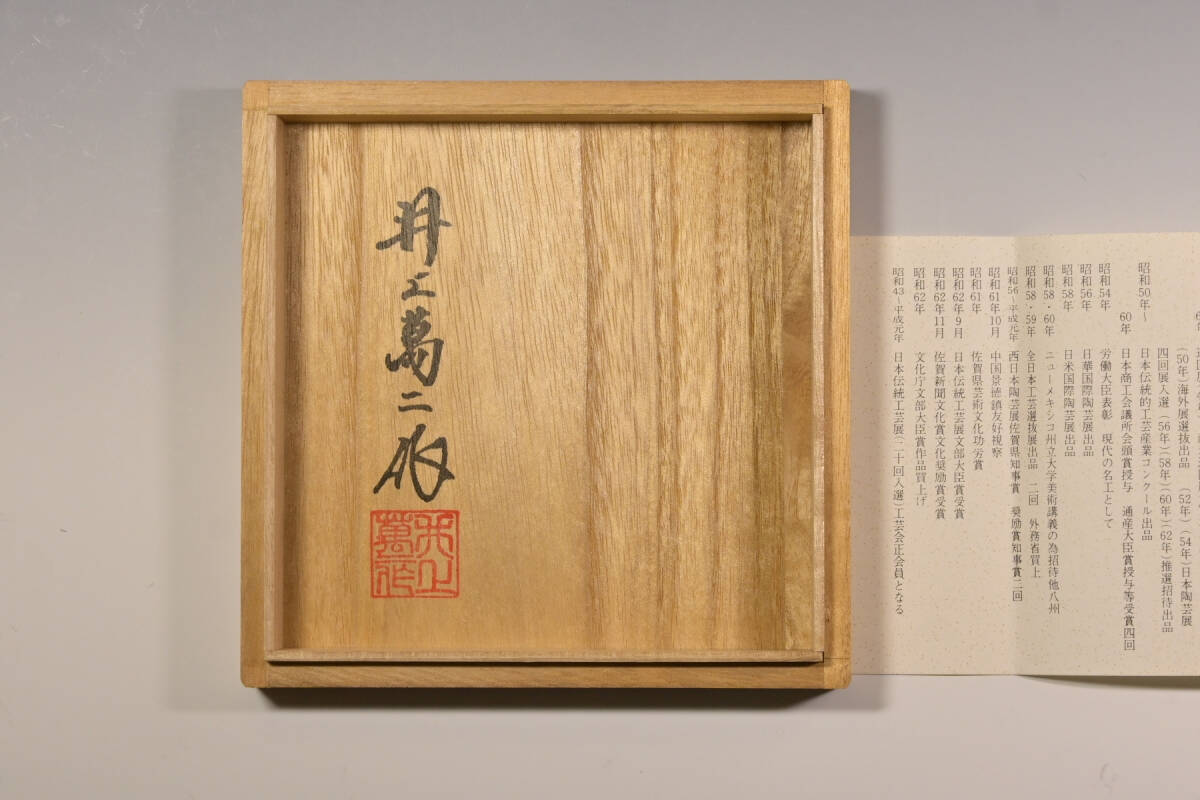 井上萬二作
井上萬二作
(50年)海外展選抜出品 (52年)(54年)日本陶芸展
四回展入選(56年)(58年)(60年)(62年)推選招待出品
昭和50年~ 日本伝統的工芸産業コンクール出品
60年 日本商工会議所会頭賞授与 通産大臣賞授与等受賞四回
昭和54年 労働大臣表彰 現代の名工として
昭和56年 日華国際陶芸展出品
昭和58年 日米国際陶芸展出品
昭和58・60年 ニューメキシコ州立大学美術講義の為招待他八州
昭和58・59年 全日本工芸選抜展出品 二回 外務省買上
昭和56~平成元年 西日本陶芸展佐賀県知事賞 奨励賞知事賞二回
昭和61年10月 中国景徳鎮友好視察
昭和61年 佐賀県芸術文化功労賞
昭和62年9月 日本伝統工芸展文部大臣賞受賞
昭和62年11月 佐賀新聞文化賞文化奨励賞受賞
昭和62年 文化庁文部大臣賞作品買上げ
昭和43~平成元年 日本伝統工芸展(二十回入選)工芸会正会員となる